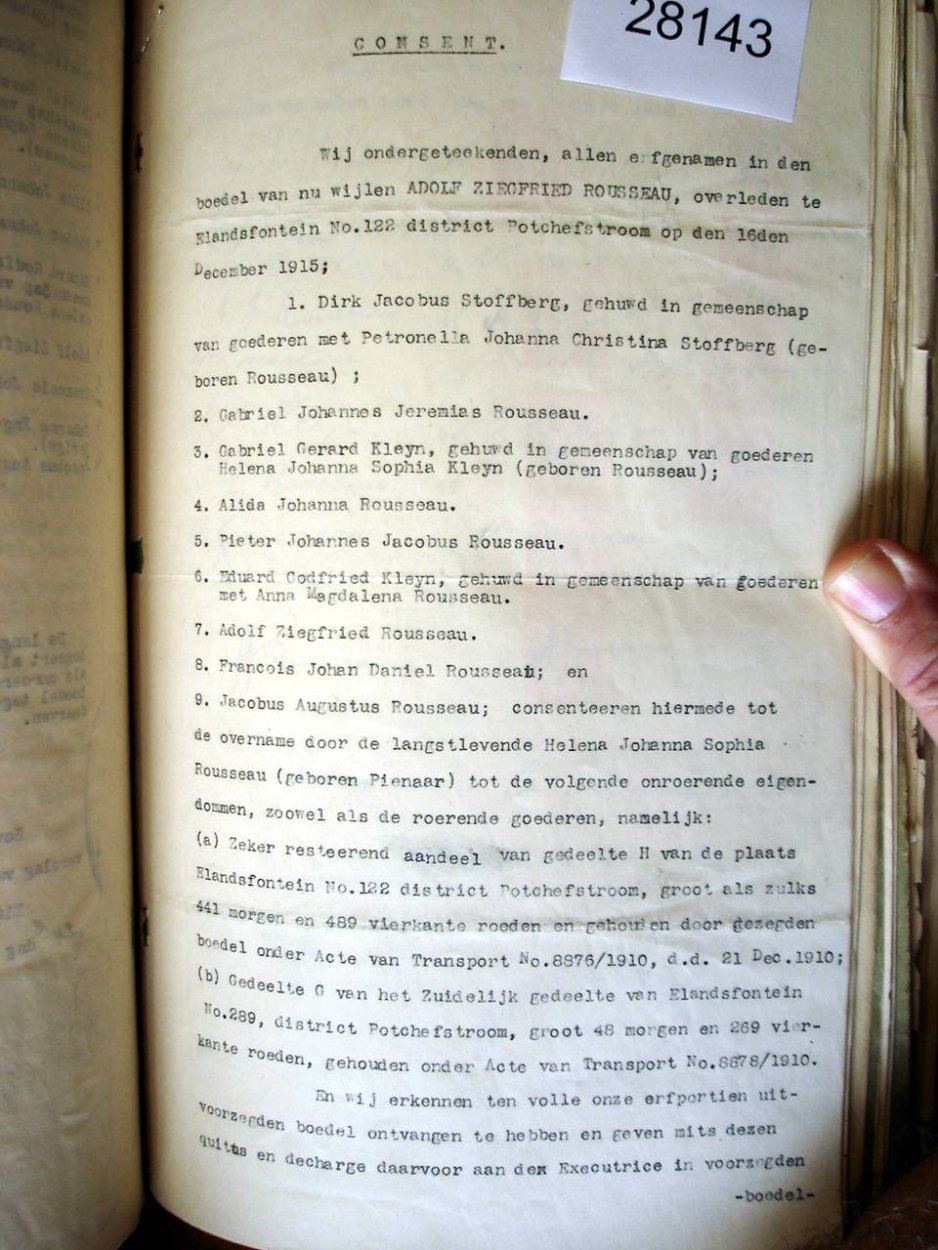 28143
CONSENT.
Wij ondergeteekenden, allen erfgenamen in den
boedel van nu wijlen ADOLF ZIEGFRIED ROUSSEAU, overleden te
Elandsfontein No.122 district Potchefstroom op den 16den
December 1915;
1. Dirk Jacobus Stoffberg, gehuwd in gemeenschap
van goederen met Petronella Johanna Christina Stoffberg (ge-
boren Rousseau) ;
2. Gabriel Johannes Jeremias Rousseau.
3. Gabriel Gerard Kleyn, gehuwd in gemeenschap van goederen
Helena Johanna Sophia Kleyn (geboren Rousseau);
4. Alida Johanna Rousseau.
5. Pieter Johannes Jacobus Rousseau.
6. Eduard Godfried Kleyn, gehuwd in gemeenschap van goederen
met Anna Magdalena Rousseau.
7. Adolf Ziegfried Rousseau.
8. Francois Johan Daniel Rousseau; en
9. Jacobus Augustus Rousseau; consenteeren hiermede tot
de overname door de langstlevende Helena Johanna Sophia
Rousseau (geboren Pienaar) tot de volgende onroerende eigen-
dommen, zoowel als de roerende goederen, namelijk:
(a) Zeker resteerend aandeel van gedeelte H van de plaats
Elandsfontein No.122 district Potchefstroom, groot als zulks
441 morgen en 489 vierkante roeden en gehouden door gezegden
boedel onder Acte van Transport No.8876/1910, d.d. 21 Dec.1910;
(b) Gedeelte G van het Zuidelijk gedeelte van Elandsfontein
No.289, district Potchefstroom, groot 48 morgen en 269 vier-
kante roeden, gehouden onder Acte van Transport No.8878/1910.
En wij erkennen ten volle onze erfportien uit-
voorzegden boedel ontvangen te hebben en geven mits dezen
quitus en decharge daarvoor aan dex Executrice in voorzegden
-boedel-